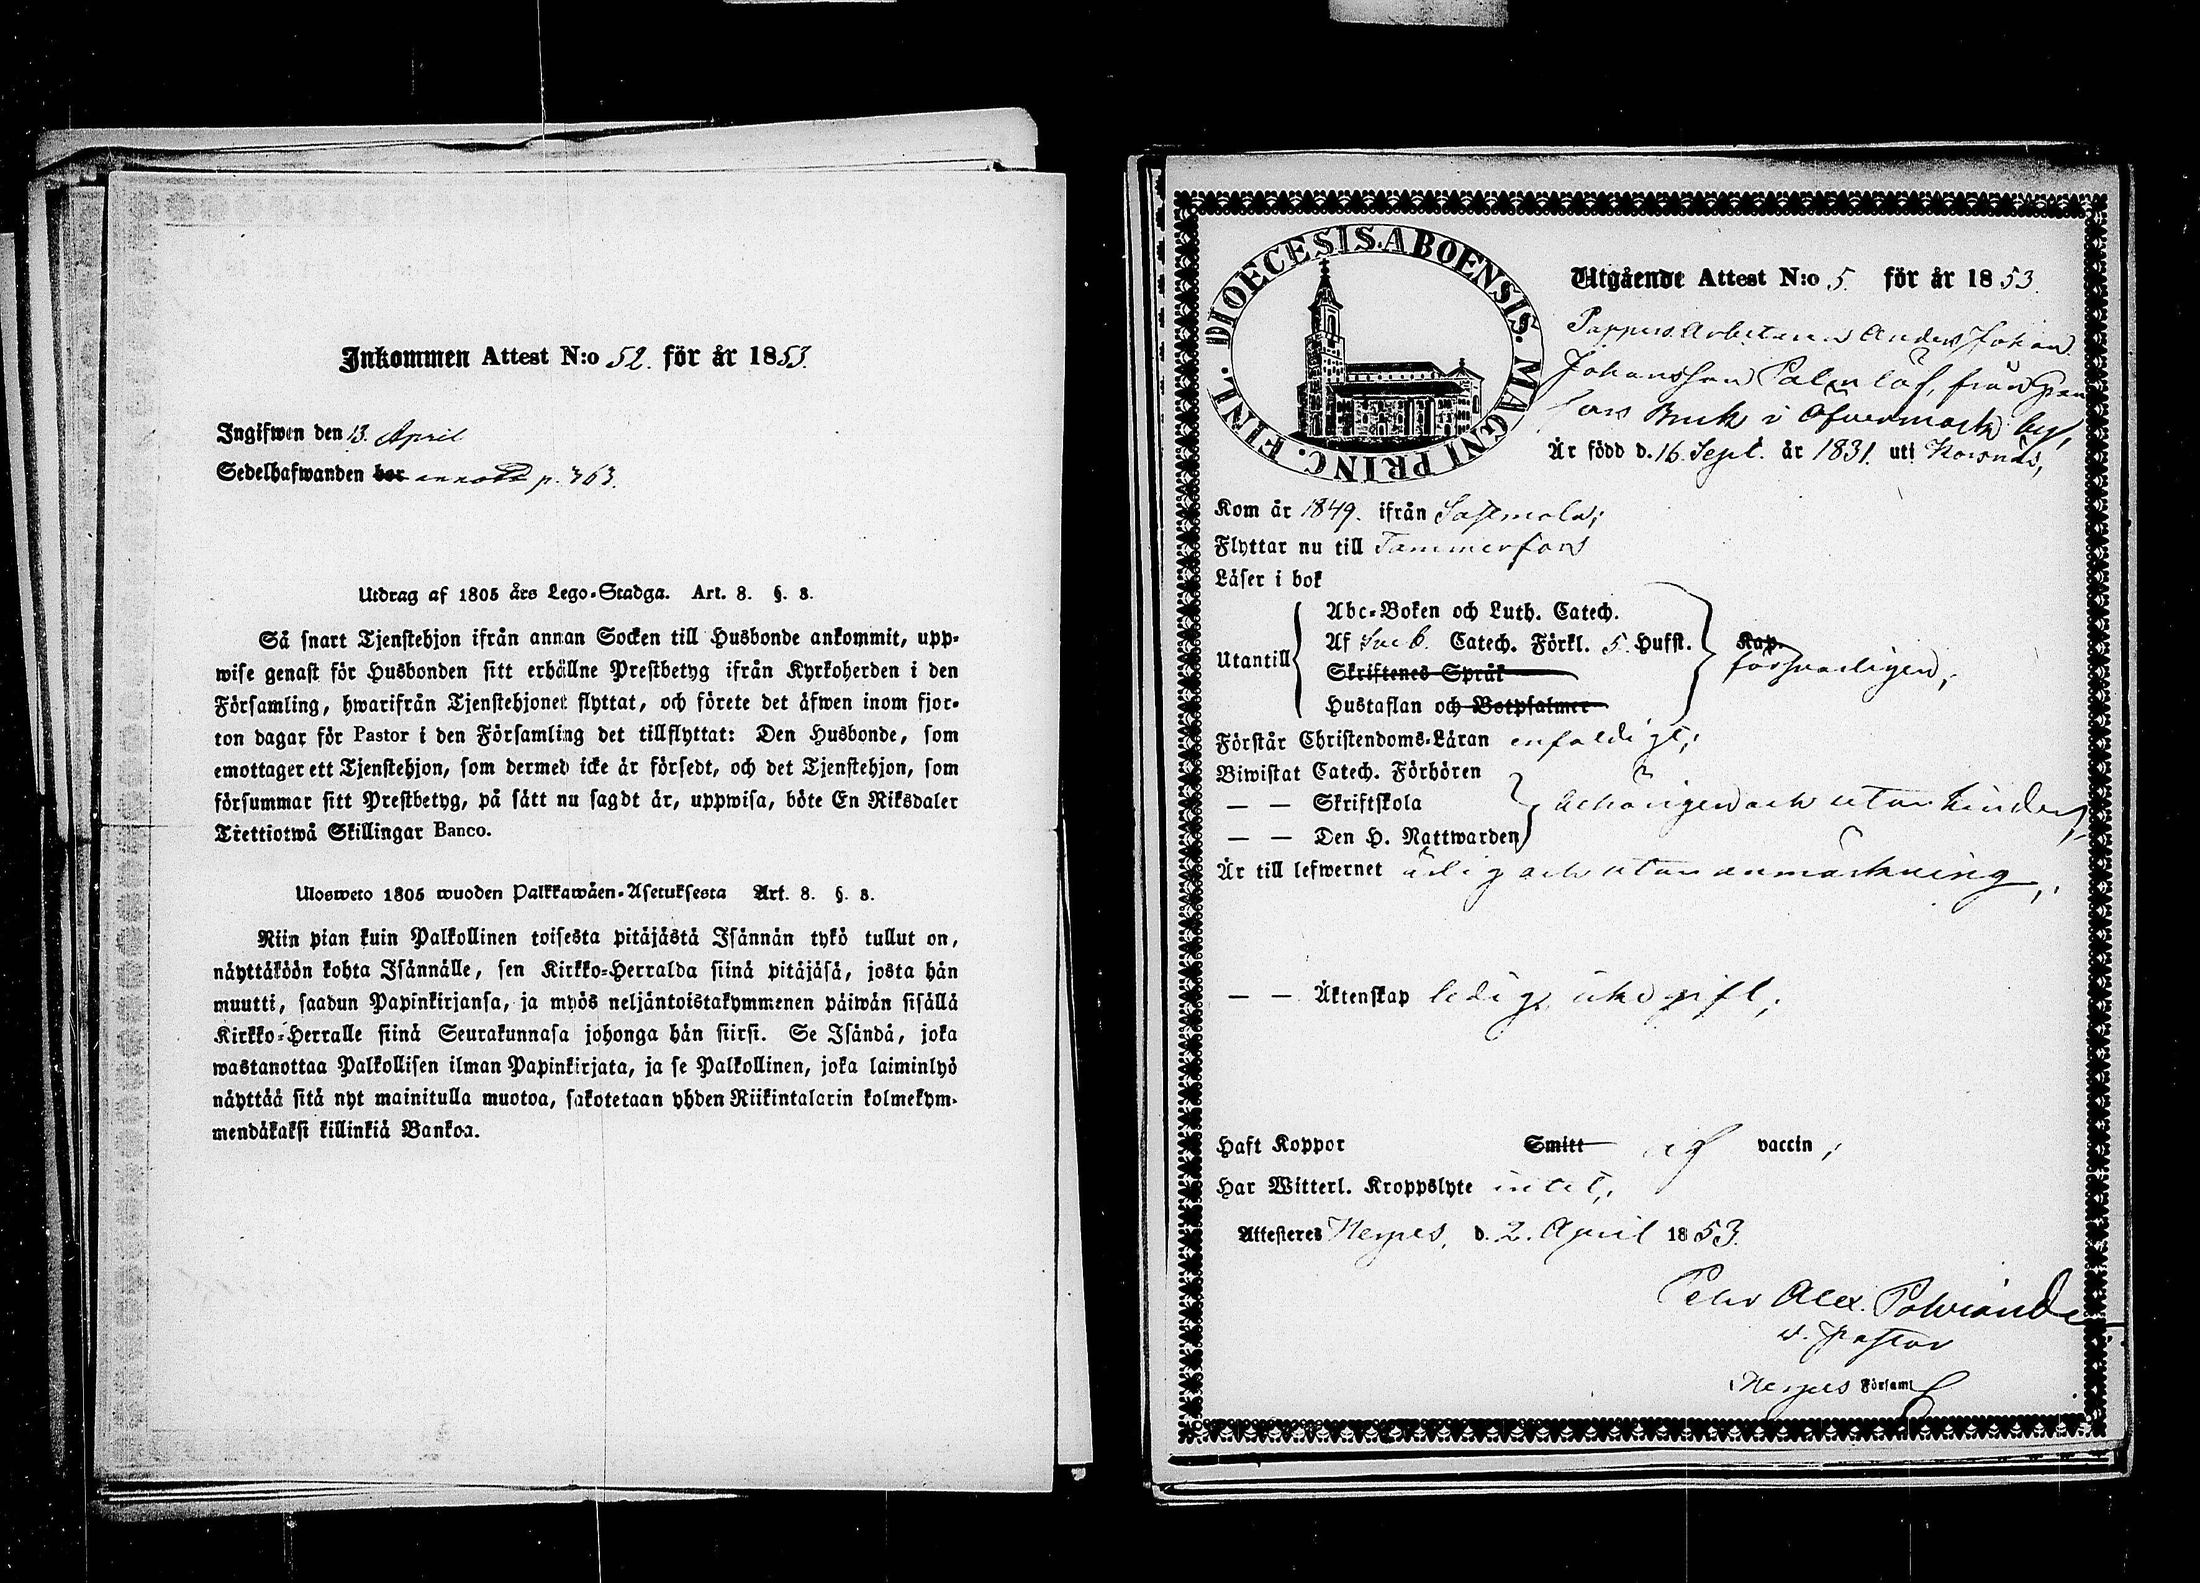 Inkommen Attest N:o 52. för år 1853.
Ingifwen den 13. April
Sedelhafwanden bor annoterad p. 363.
Utdrag af 1805 års Lego-Stadga. Art. 8. §. 8.
Så snart Tjenstehjon ifrån annan Socken till Husbonde ankommit, upp-
wise genast för Husbonden sitt erhållne Prestbetyg ifrån Kyrkoherden i den
Församling, hwarifrån Tjenstehjonet flyttat, och förete det äfwen inom fjor-
ton dagar för Pastor i den Församling det tillflyttat: Den Husbonde, som
emottager ett Tjenstehjon, som dermed icke är försedt, och det Tjenstehjon, som
försummar sitt Prestbetyg, på sätt nu sagdt är, uppwisa, böte En Riksdaler
Trettiotwå Skillingar Banco.
Ulosweto 1805 wuoden Palkkawäen-Asetuksesta Art. 8. §. 8.
Niin pian kuin Palkollinen toisesta pitäjästä Isännän tykö tullut on,
näyttäköön kohta Isännälle, sen Kirkko-Herralda siinä pitäjäsä, josta hän
muutti, saadun Papinkirjansa, ja myös neljäntoistakymmenen päiwän sisällä
Kirkko-Herralle siinä Seurakunnasa johonga hän siirsi. Se Isändä, joka
wastanottaa Palkollisen ilman Papinkirjata, ja se Palkollinen, joka laiminlyö
näyttää sitä nyt mainitulla muotoa, sakotetaan yhden Riikintalarin kolmekym-
mendäkaksi killinkiä Bankoa.
DIOECESIS. ABOENSIS. MAGNI PRINC. FINL.
Utgående Attest N:o 5. för år 1853.
Pappers Arbetaren Anders Johan
Johansson Palmlöf, från Gran
fors Bruk i Öfvermark by,
Är född d. 16. Sept. år 1831. uti Korsnäs,
Kom år 1849. ifrån Sastmola;
Flyttar nu till Tammerfors
Läser i bok
Utantill
Abc-Boken och Luth. Catech.
Af Sveb. Catech. Förkl. 5. Hufst.
Skriftenes Språk
Hustaflan och Botpsalmer
Kap.
försvarligen;
Förstår Christendoms-Läran enfaldigt;
Biwistat Catech. Förhören
— — Skriftskola
— — Den H. Nattwarden
behörigen och utan hinder;
Är till lefwernet ärlig och utan anmärkning;
— — Äktenskap ledig, ogift;
Haft Koppor Smitt af vaccin;
Har Witterl. Kroppslyte intet;
Attesteres Nerpes, d. 2. April 1853.
Petr Alex.
v. Pastor
Nerpes Församl